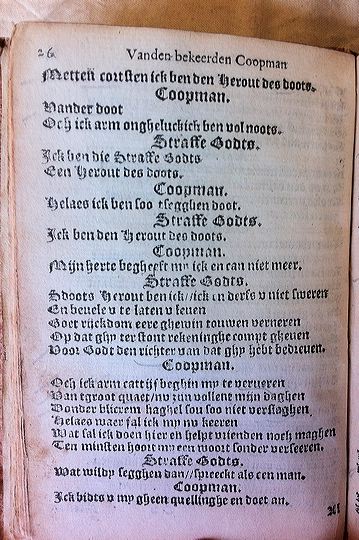 26 Vanden bekeerden Coopman
Metten cortsten ick ben den Herout des doots.
Coopman.
Vander doot
Och ick arm ongheluckich ben vol noots.
Straffe Godts.
Ick ben die Straffe Godts
Een Herout des doots.
Coopman.
Helaes ick ben soo tsegghen doot.
Straffe Godts.
Ick ben den Herout des doots.
Coopman.
Mijn herte begheeft my ick en can niet meer.
Straffe Godts.
Sdoots Herout ben ick//ick en derfs v niet sweren
En bevele v te laten v leuen
Goet rijckdom eere ghewin touwen verneren
Op dat ghy terstont rekeninghe compt gheuen
Voor Godt den richter van dat ghy hebt bedreuen.
Coopman.
Och ick arm cattijf beghin my te ververen
Van tgroot quaet/nu zijn vollent mijn daghen
Donder blicrem haghel sou soo niet verslaghen
Helaes waer sal ick my nv keeren
Wat sal ick doen hier en helpt vrienden noch maghen
Ten minsten hoort my een woort sonder verseeren.
Straffe Godts.
Wat wildy segghen dan//spreeckt als een man.
Coopman.
Ick bidts v my gheen quellinghe en doet an.